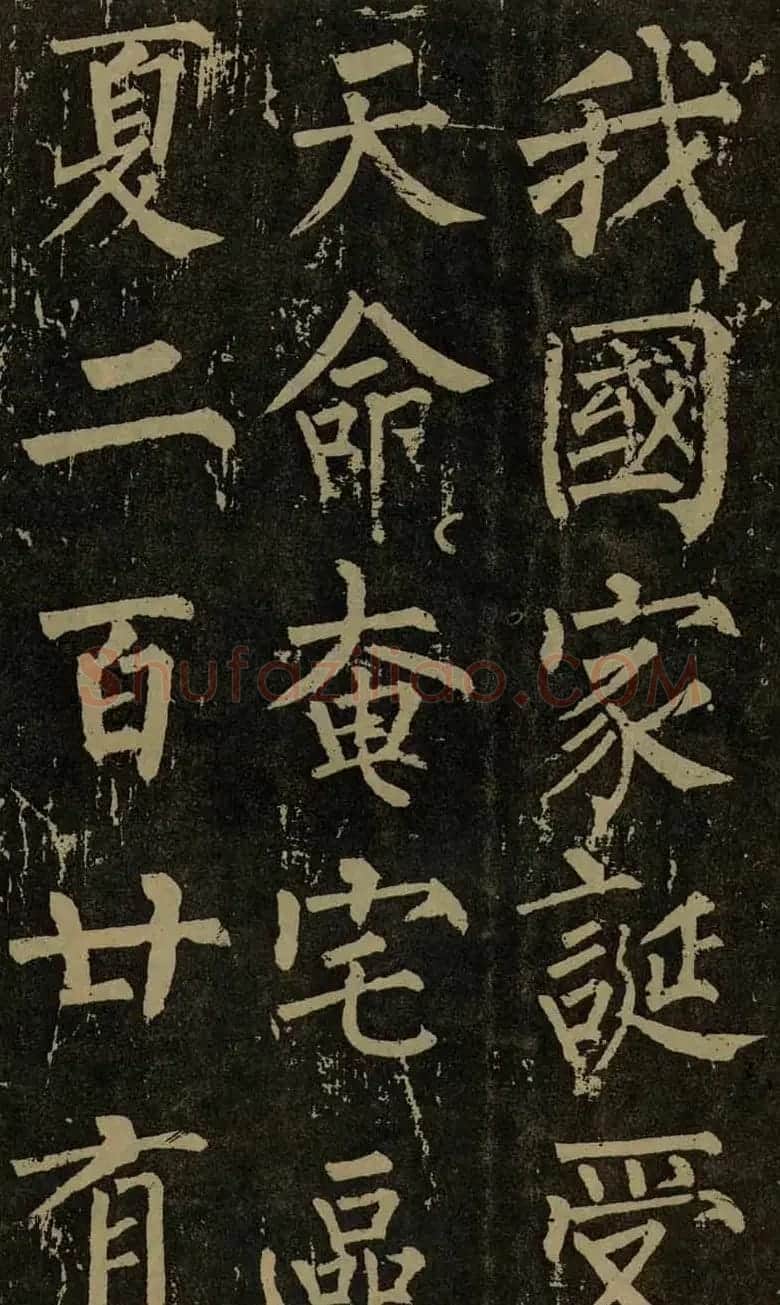 我國家誕受
天命奄宅區
夏二百廿有
Shufaziliao.COM